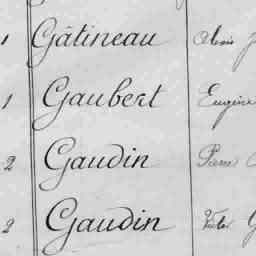 1 Gâtineau Alexis
1 Gaubert Eugène
2 Gaudin Pierre
2 Gaudin Victor G